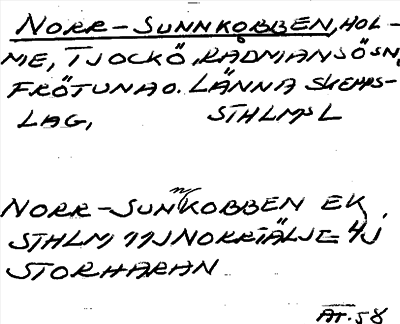 NORR-SUNNKOBBEN, HOL-
ME, TJOCKÖ, RÅDMANSÖ SN,
FRÖTUNA O. LÄNNA SKEPPS-
LAG, STHLMS L
NORR-SUNNKOBBEN EK
STHLM 11J NORRTÄLJE 4J
STORHARAN
AT. 58